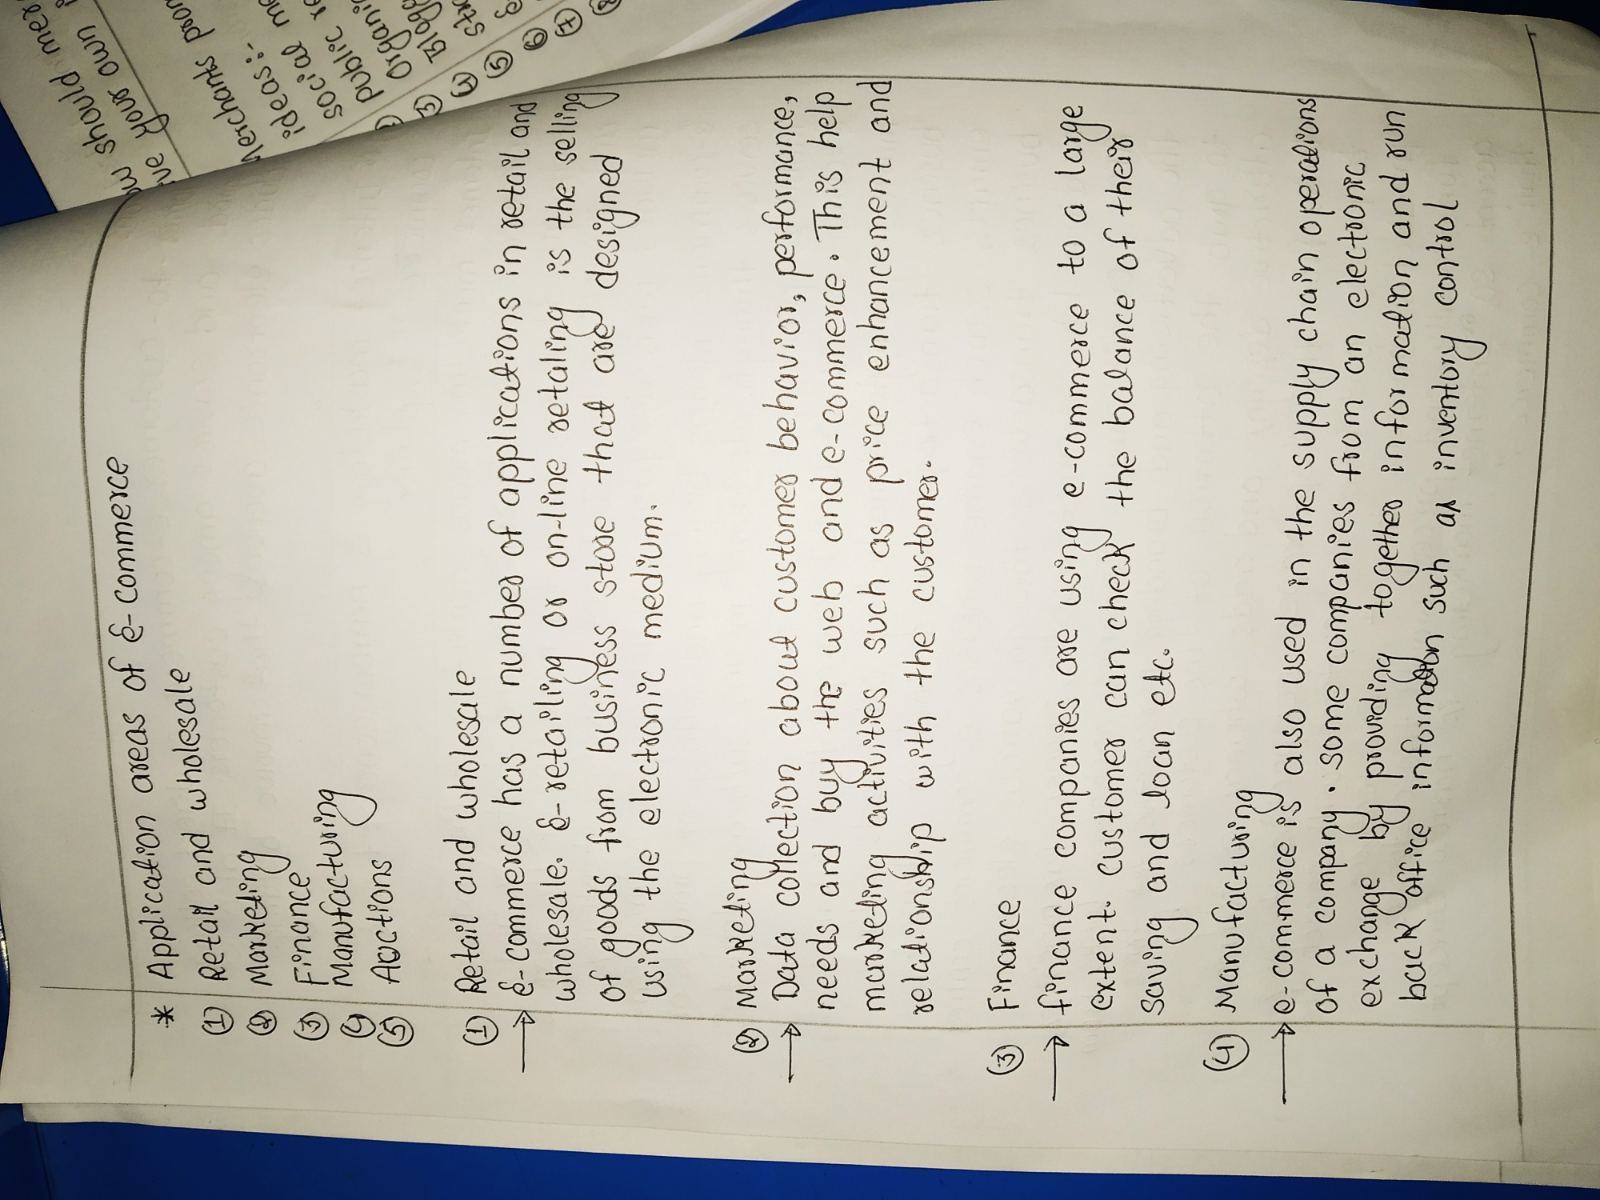 * Application areas of E-commerce
① Retail and wholesale
② Marketing
③ Finance
④ Manufacturing
⑤ Auctions
① Retail and wholesale
→ E-commerce has a number of applications in retail and
wholesale. E-retailing or on-line retaling is the selling
of goods from business store that are designed
using the electronic medium.
② Marketing
→ Data collection about customer behavior, performance,
needs and buy the web and e-commerce. This help
marketing activities such as price enhancement and
relationship with the customer.
③ Finance
→ finance companies are using e-commerce to a large
extent. customer can check the balance of their
saving and loan etc.
④ Manufacturing
→ e-commerce is also used in the supply chain operations
of a company. some companies from an electronic
exchange by providing together information and run
back office information such as inventory control
ow should mer
ve your own
Merchants prom
ideas:-
social me
public re
③ Organi
④ Blogg
⑤ str
⑥ E
⑦
⑧